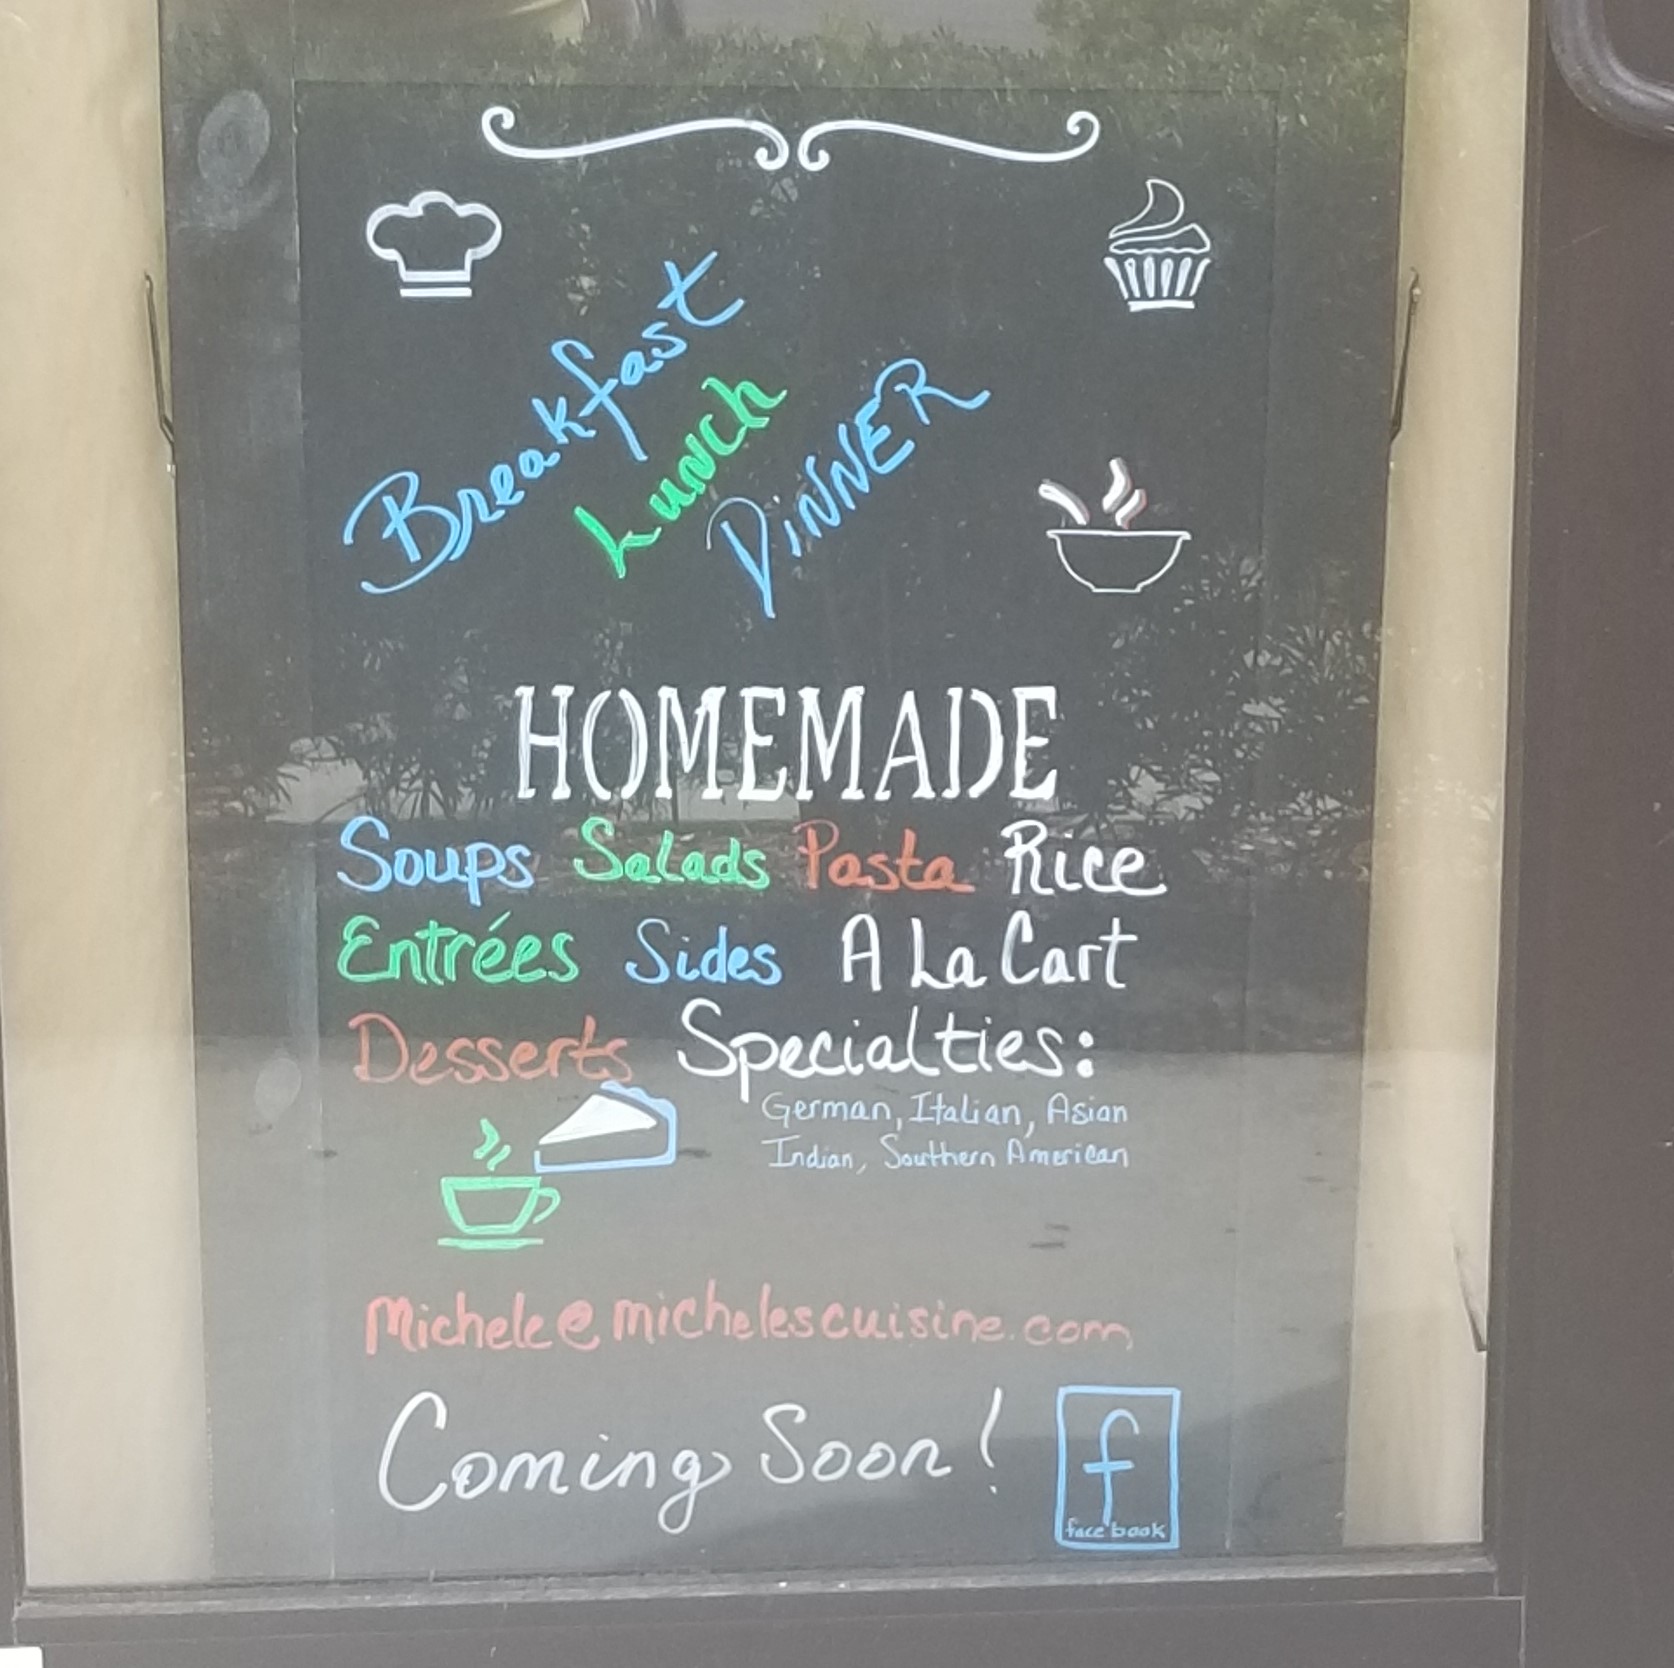 Breakfast
Lunch
DiNNER
HOMEMADE
Soups Salads Pasta Rice
Entrées Sides A La Cart
Desserts Specialties:
German, Italian, Asian
Indian, Southern American
Michele@michelescuisine.com
Coming Soon!
f
facebook